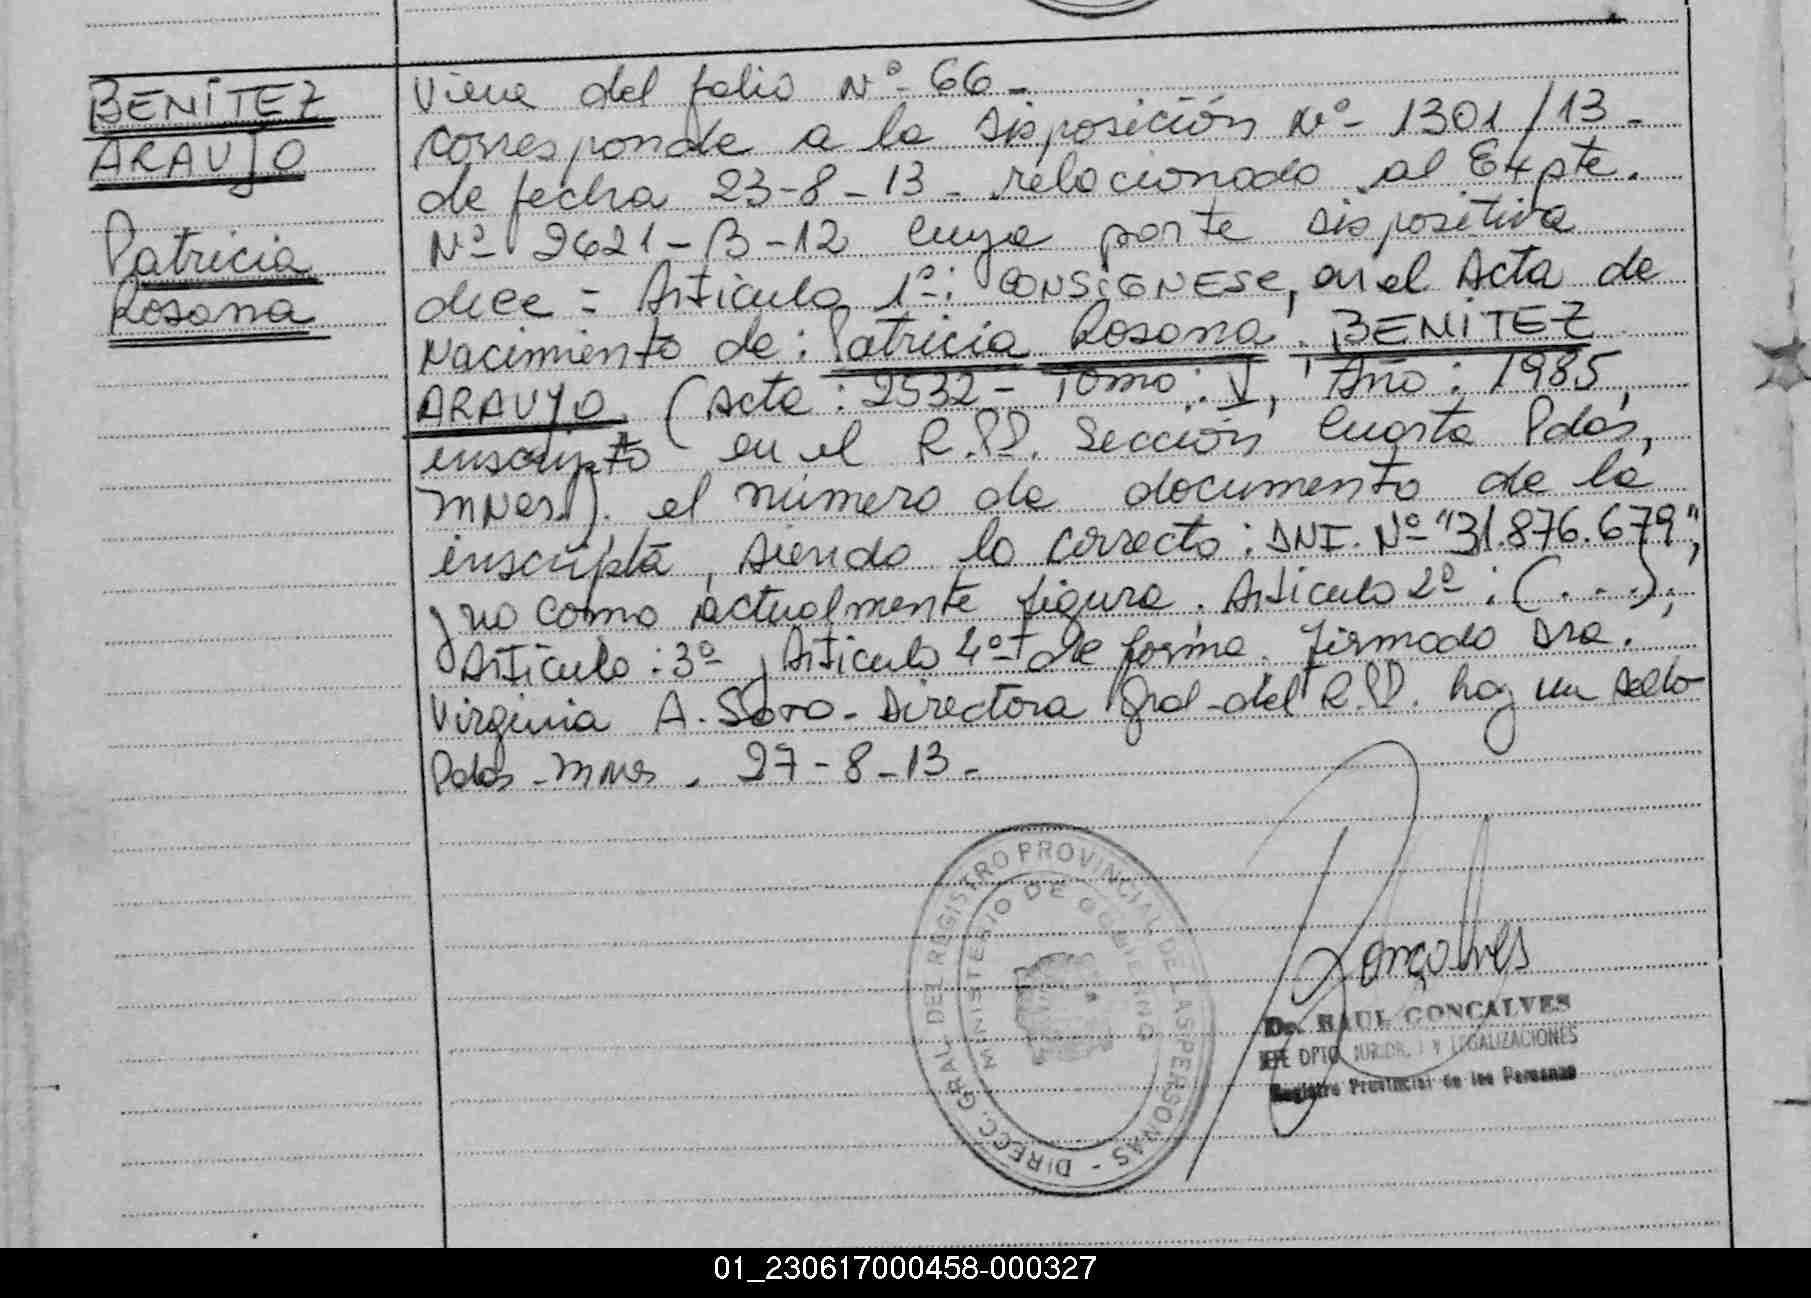 BENITEZ
ARAUJO
Patricia
Rosana
Viene del folio Nº 66-
corresponde a la disposición Nº 1301/13-
de fecha 23-8-13- relacionado al Expte.
Nº 2621-B-12 cuya parte dispositiva
dice = Artículo 1º: CONSIGNESE, en el Acta de
Nacimiento de: Patricia Rosana BENITEZ
ARAUJO (Acta: 2532- Tomo: V, Año: 1985,
inscripto en el R.P.P. Sección Cuarta Pdas,
Mnes). el número de documento de la
inscripta, siendo lo correcto: DNI. Nº "31.876.679",
y no como actualmente figura. Artículo 2º: (...);
Artículo: 3º y Artículo 4º de forma. Firmado Dra.
Virginia A. Soro- Directora Gral-del R.P.P. hay un sello
Pdas-Mnes. 27-8-13-
DIRECC. GRAL. DEL REGISTRO PROVINCIAL DE LAS PERSONAS -
MINISTERIO DE GOBIERNO
Goncalves
Dr. RAUL GONCALVES
JEFE DPTO. JURIDICO Y LEGALIZACIONES
Registro Provincial de las Personas
01_230617000458-000327